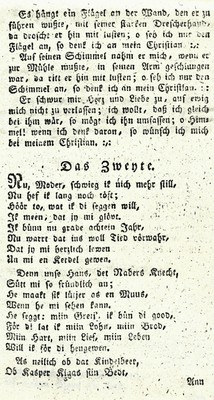 Es hängt ein Flügel an der Wand, den er zu
führen wußte, mit seiner starken Drescherhand,
da droscht er hin mit lusten; o seh ich nur den
Flügel an, so denk ich an mein Christian. :,:
Auf seinen Schimmel nahm er mich, wenn er
zur Mühle wußte, in seinen Arm geschlungen
war, da ritt er hin mit lusten; o seh ich nur den
Schimmel an, so denk ich an mein Christian. :,:
Er schwur mir Herz und Liebe zu, auf ewig
mich nicht zu verlassen; ich wollt, daß ich gleich
bei ihn wär, so mögt ich ihn umfassen; o Him-
mel! wenn ich denk daran, so wünsch ich mich
bei meinem Christian. :,:
Das Zweyte.
Nu, Moder, schwieg ik nich mehr still,
Nu hef ik lang noch töft;
Höör to, wat ik di seggen will,
Ik meen, dat jy mi glövt.
Ik bünn nu grade achtein Jahr,
Nu warrt dat uns woll Tied vörwahr,
Dat jy mi hertlich lewen
Un mi en Kerdel gewen.
Denn unse Hans, det Nabers Knecht,
Sütt mi so fründlich an;
He maakt sik lütjer as en Muus,
Wenn he mi sehen kann.
He seggt: miin Greij', ik bün di good,
För di lat ik miin Lohn, miin Brod,
Miin Hart, miin Lief, miin Leben
Will ik för di hengewen.
As neilich ob dat Kindelbeer,
Ob Kasper Kigas siin Bedt,
Ann